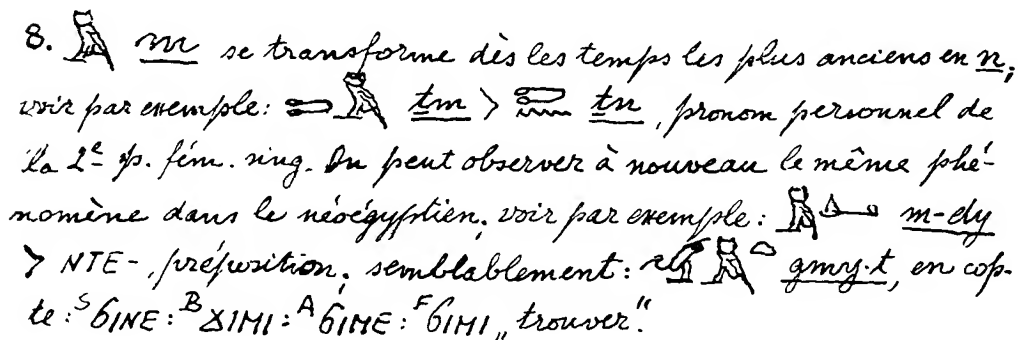 8. 𓅓 m se transforme dès les temps les plus anciens en n;
voir par exemple: 𓍿𓅓 ṯm > 𓍿𓈖 ṯn, pronom personnel de
la 2e p. fém. sing. On peut observer à nouveau le même phé-
nomène dans le néoégyptien; voir par exemple: 𓅓𓂞 m-dy
> NTE-, préposition; semblablement: 𓅠𓅓𓏏 gmy·t, en cop-
te: S ϬINE : B ϪIMI : A ϬIME : F ϬIMI „trouver“.